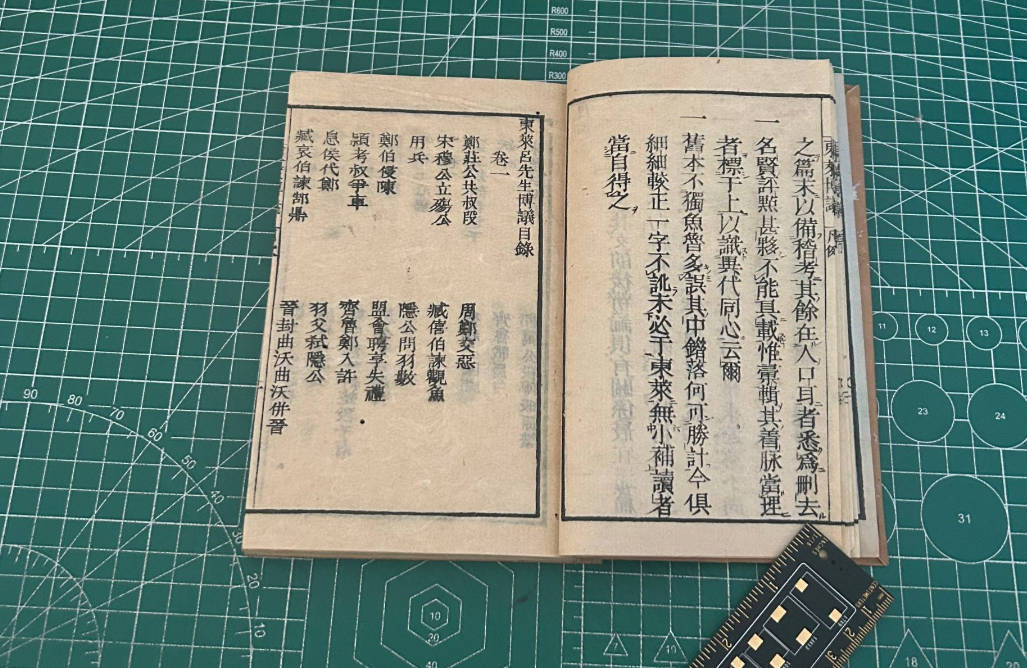 之篇末以備稽考其餘在人口耳者悉爲刪去
一 名賢評點甚夥不能具載惟彙輯其著脉當理
者標于上以識異代同心云爾
一 舊本不獨魚魯多誤其中錯落何可勝計今俱
細細較正一字不訛未必于東萊無小補讀者
當自得之
東萊呂先生博議目錄
卷一
鄭莊公共叔段
周鄭交惡
宋穆公立殤公
臧僖伯諫觀魚
用兵
隱公問羽數
鄭伯侵陳
盟會聘享失禮
頴考叔爭車
齊魯鄭入許
息侯伐鄭
羽父弒隱公
臧哀伯諫郜鼎
晉封曲沃曲沃併晉
R600
R500
R400
R300
11
12
13
23
24
31
90
80
70
60
50
40
30
20
10
10
20
40
18